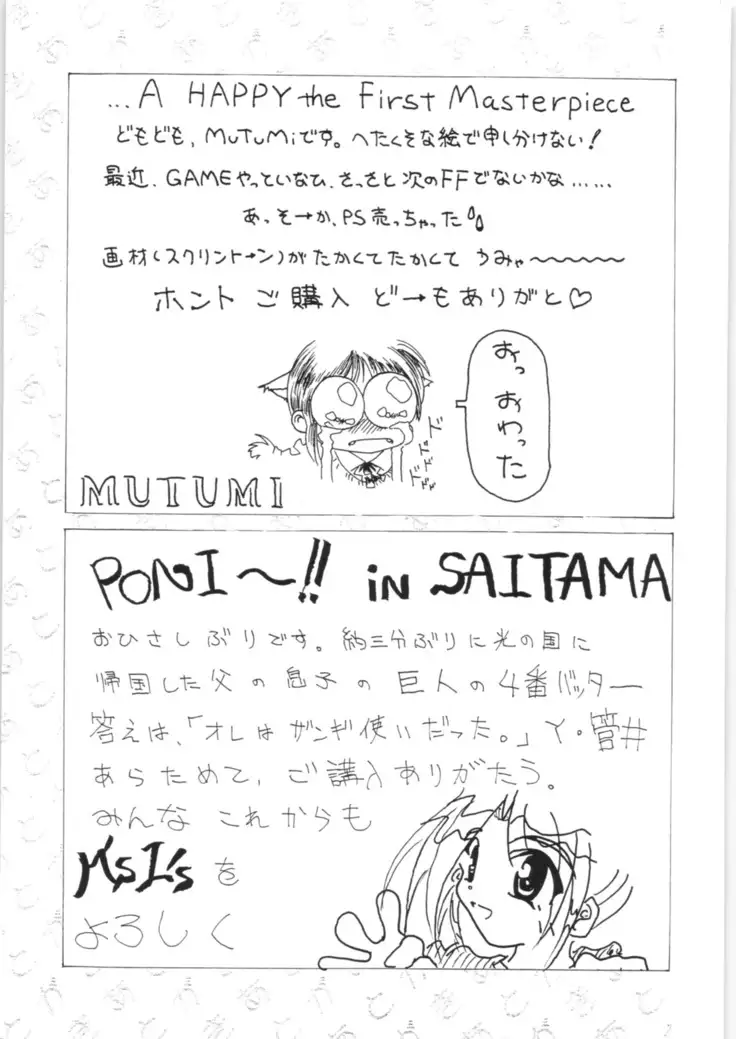 ...A HAPPY the First Masterpiece
どもども、MUTUMiです。へたくそな絵で申し分けない!
最近、GAMEやっていなひ、さっさと次のFFでないかな……
あっそーか、PS売っちゃった
画材(スクリントーン)がたかくてたかくて うみゃ〜〜〜〜〜
ホント ご購入 ど→もありがと♡
おっ
おわった
ドドドドド
MUTUMI
PONI〜!! in SAITAMA
おひさしぶりです。約三分ぶりに光の国に
帰国した父の息子の巨人の4番バッター
答えは、「オレはザンギ使いだった。」Y・管井
あらためて、ご講入ありがたう。
みんな これからも
M'sI'sを
よろしく